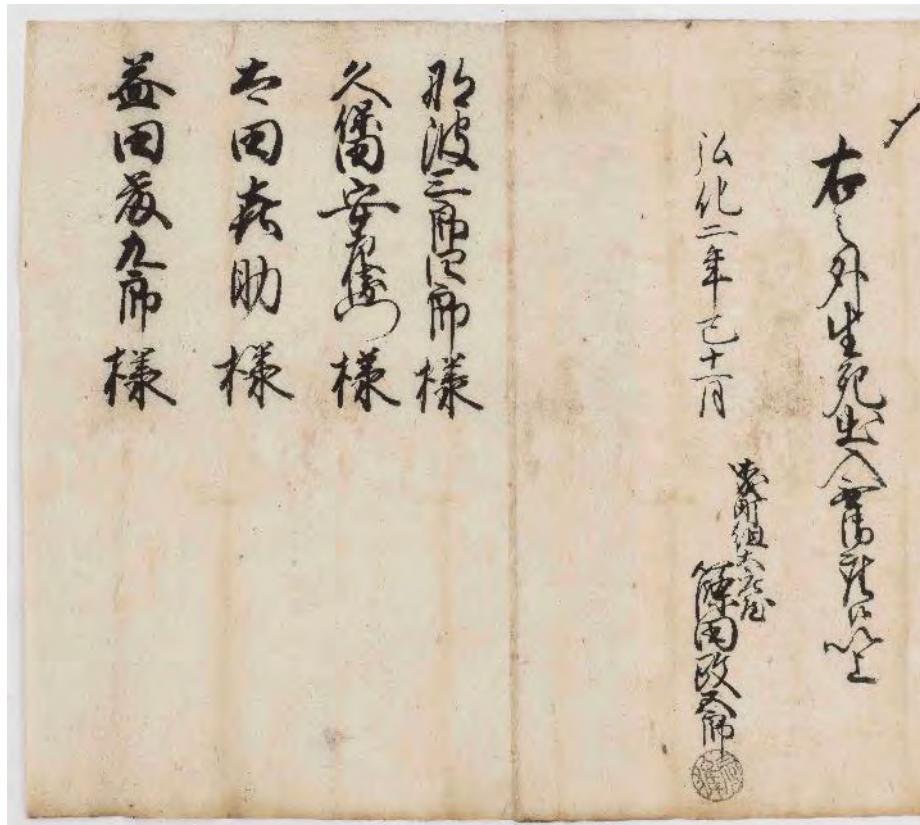 右之外生死出入無御座候以上
弘化二年巳十一月
組大庄屋
篠田政五郎
那波三郎四郎様
久保田安右衛門様
太田喜助様
益田藤九郎様